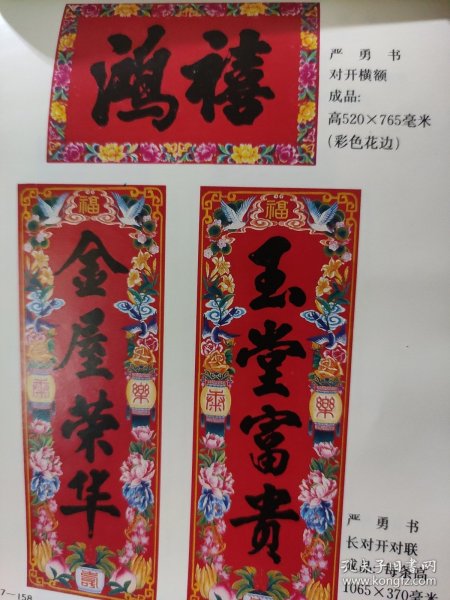 鸿禧
严勇书
对开横额
成品:
高520×765毫米
(彩色花边)
福
金屋荣华
福
玉堂富贵
樂
樂
严勇书
长对开对联
1065×370毫米
7—158
孔夫子旧书网
kongfz.com